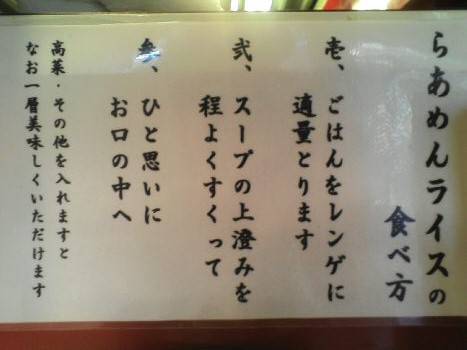 らあめんライスの
食べ方
壱、ごはんをレンゲに
適量とります
弐、スープの上澄みを
程よくすくって
参、ひと思いに
お口の中へ
高菜・その他を入れますと
なお一層美味しくいただけます